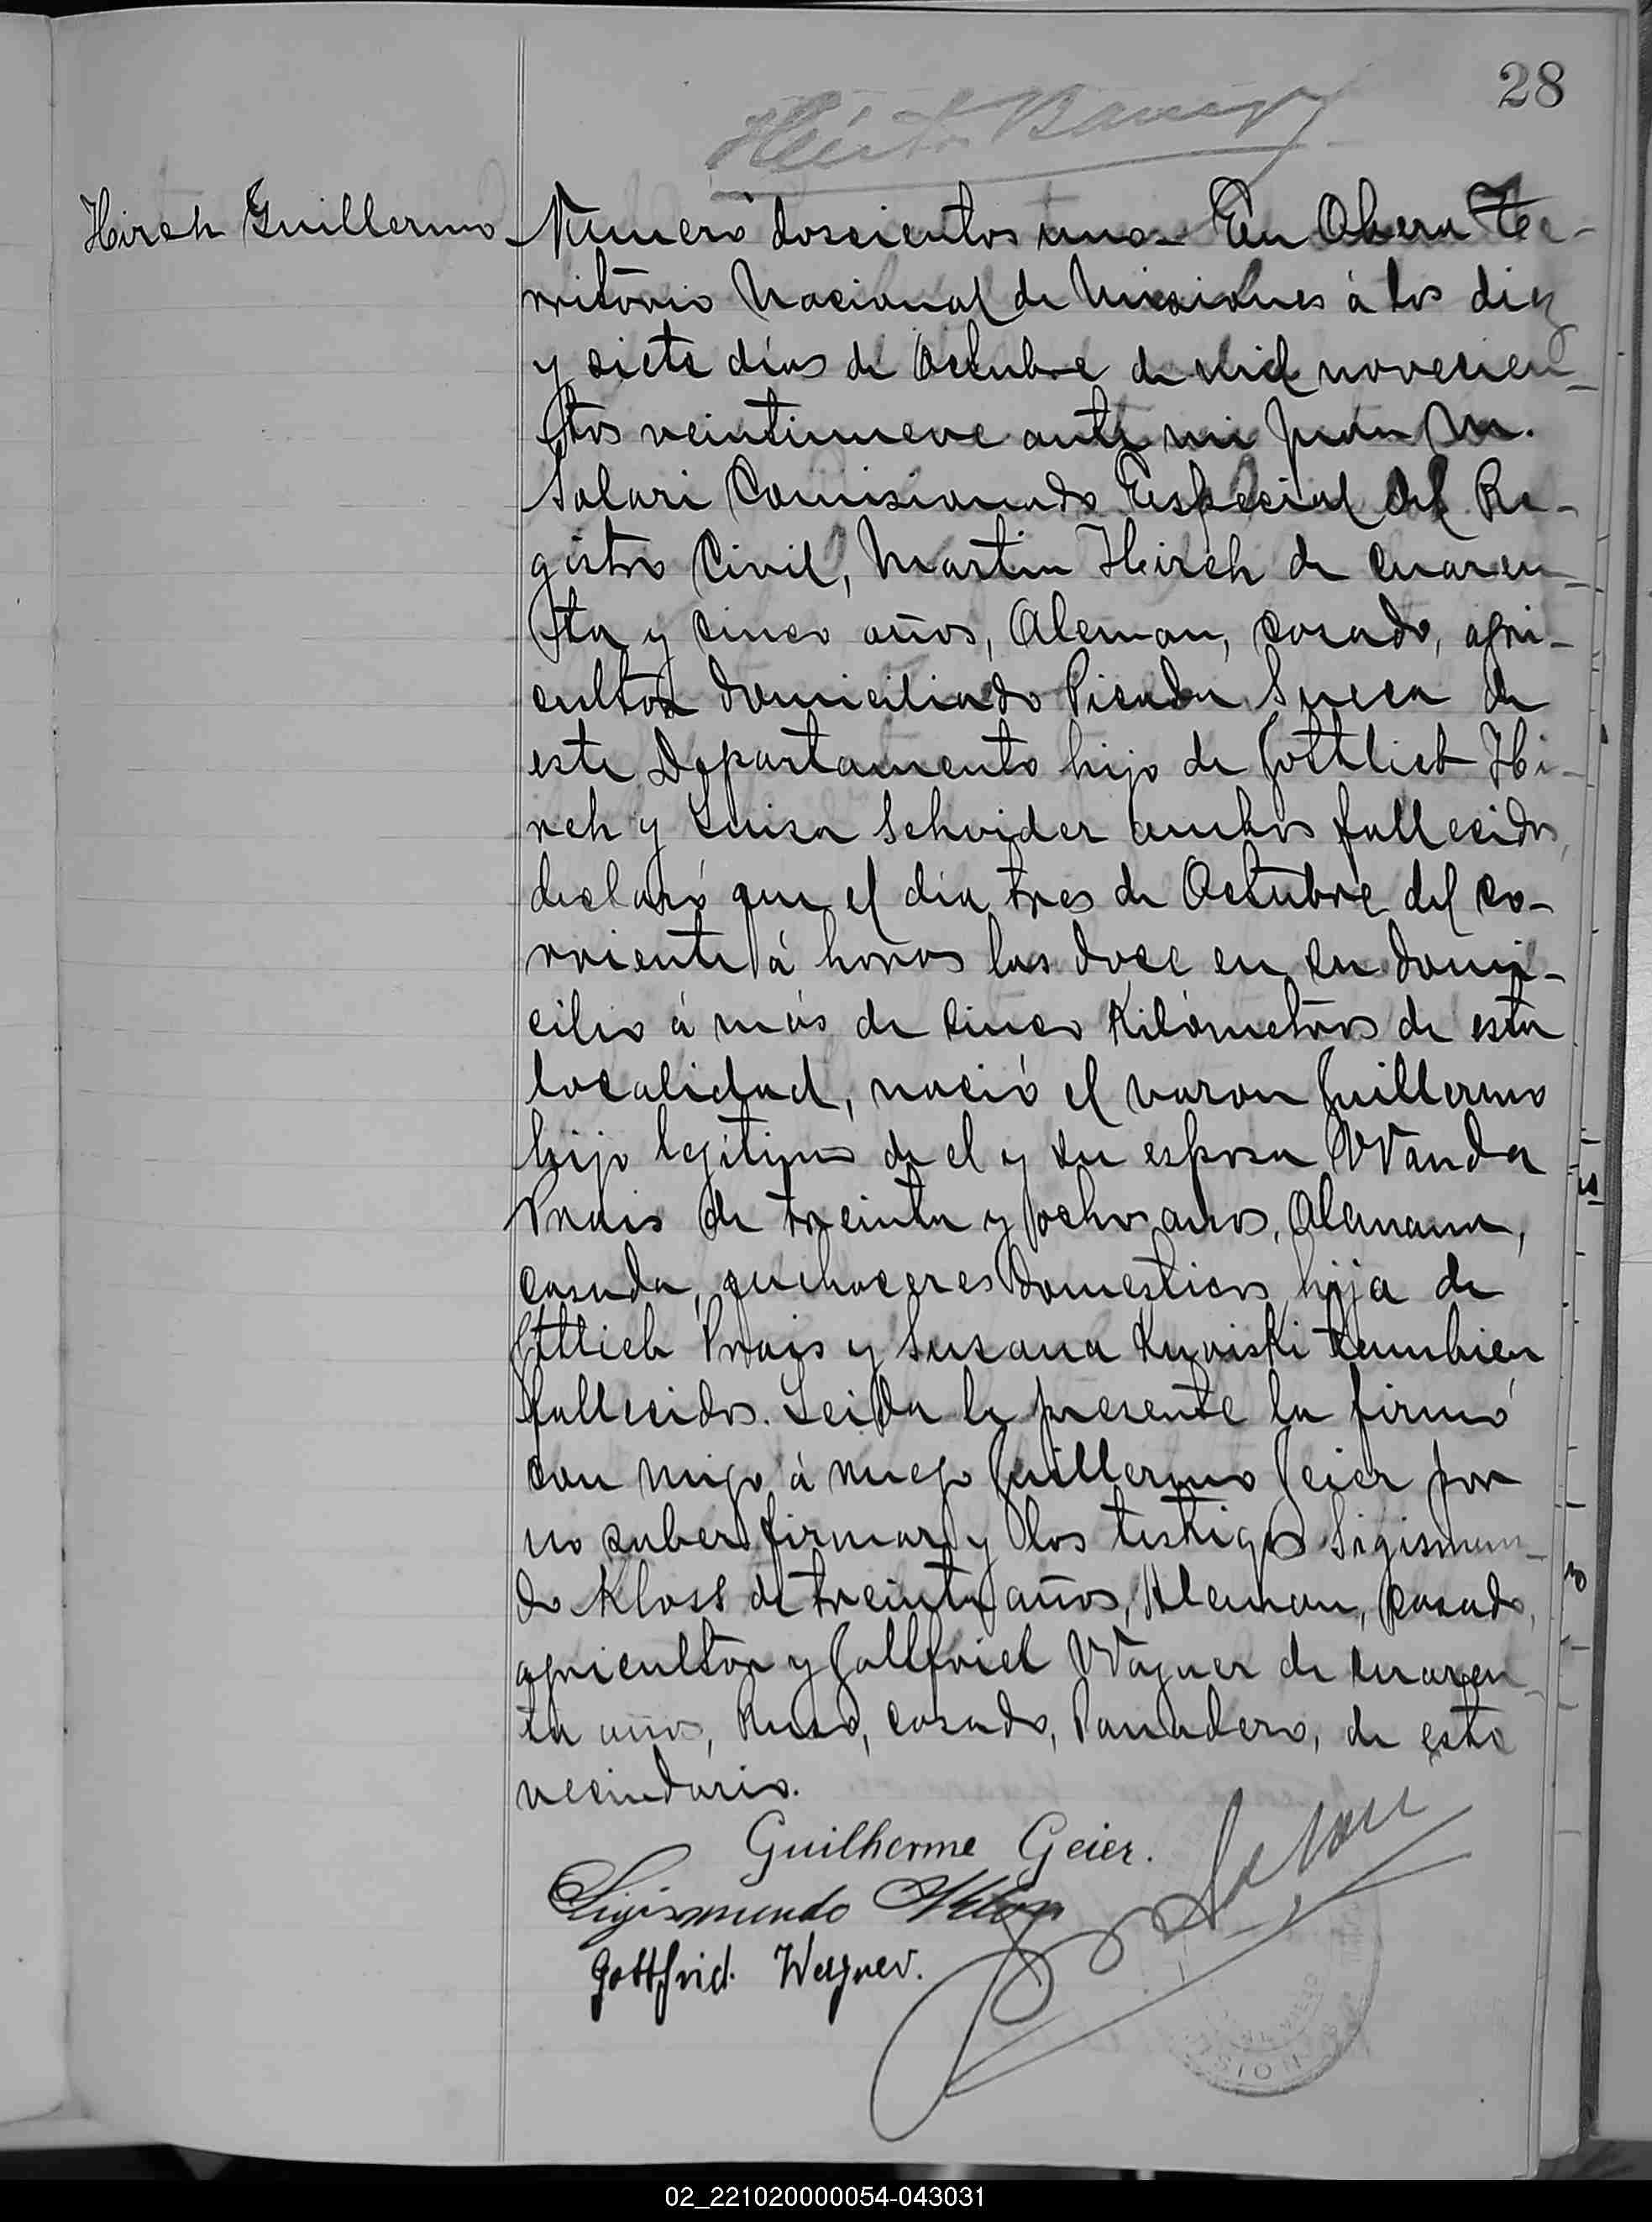 28
Hirch Guillermo
Numero doscientos uno- En Obera Te-
rritorio Nacional de Misiones à los diez
y siete días de Octubre de mil novecien-
tos veintinueve ante mi Juan M.
Solari Comisionado Especial del Re-
gistro Civil, Martin Hirch de cuaren-
ta y cinco años, Aleman, casado, agri-
cultor domiciliado Picada Sueca de
este Departamento hijo de Gottlieb Hi-
rch y Luisa Schnider ambos fallecidos,
declaró que el día tres de Octubre del co-
rriente á horas las doce en su domi-
cilio á más de cinco Kilómetros de esta
localidad, nació el varon Guillermo
hijo legitimo de el y su esposa Wanda
Prais de treinta y ocho años, Alemana,
casada, quehaceres domesticos, hija de
Prais y Susana tambien
fallecidos. Leida la presente la firmó
con migo á ruego Guillermo Geier por
no saber firmar y los testigos Sigismun-
do Kloss de treinta años, Aleman, casado,
agricultor y Gottfried Wagner de cuaren-
ta años, Ruso, casado, Panadero, de este
vecindario.
Guilherme Geier.
Sigismundo Kloss
Gottfrid. Wegner.
02_221020000054-043031